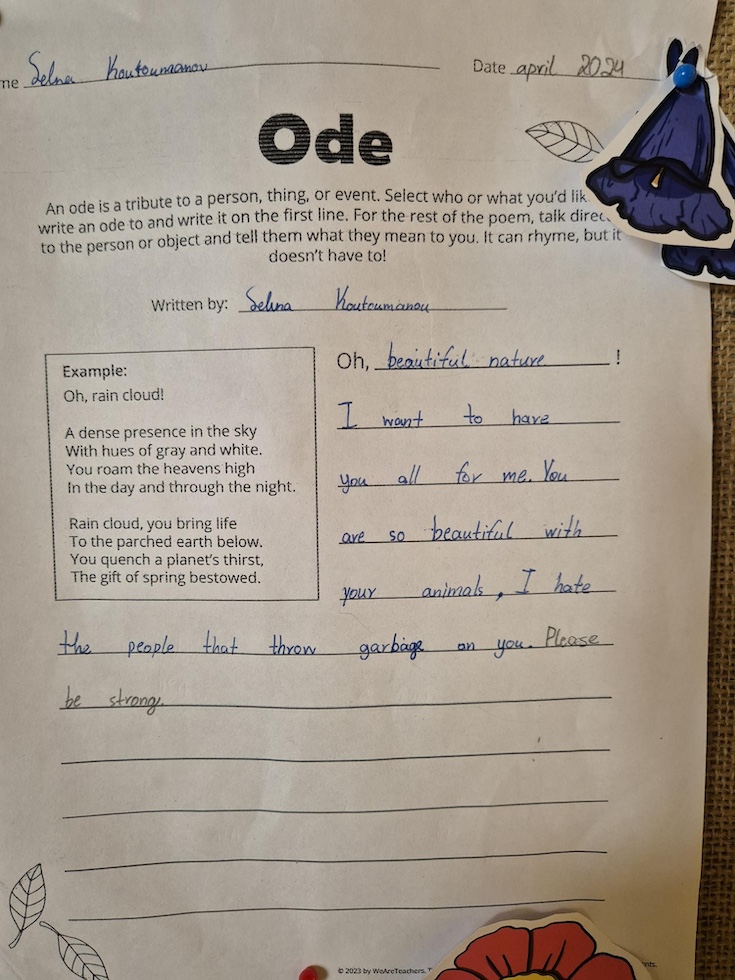 me Selna Koutoumanou Date april 2024
Ode
An ode is a tribute to a person, thing, or event. Select who or what you'd
write an ode to and write it on the first line. For the rest of the poem, talk
to the person or object and tell them what they mean to you. It can rhyme, but it
doesn't have to!
Written by: Selina Koutoumanou
Example:
Oh, rain cloud!
A dense presence in the sky
With hues of gray and white.
You roam the heavens high
In the day and through the night.
Rain cloud, you bring life
To the parched earth below.
You quench a planet's thirst,
The gift of spring bestowed.
Oh, beautiful nature !
I want to have
you all for me. You
are so beautiful with
your animals, I hate
the people that throw garbage on you. Please
be strong.
© 2023 by WeAreTeachers.